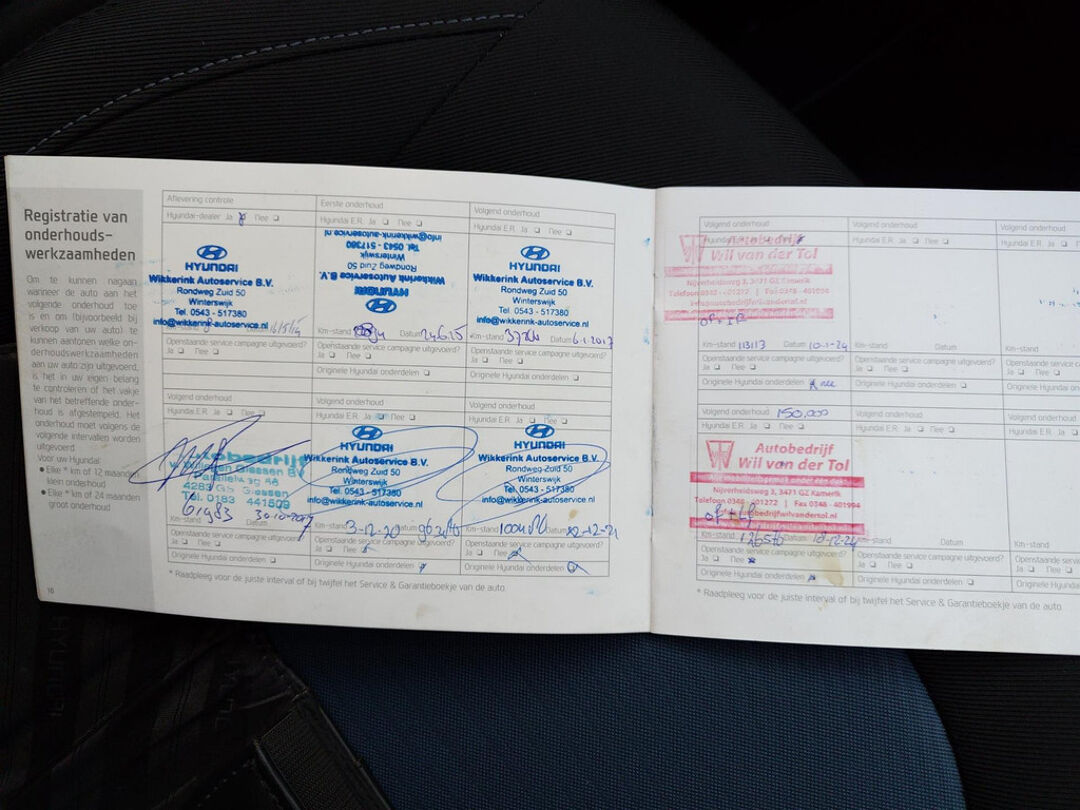 Registratie van
onderhouds-
werkzaamheden
Om te kunnen nagaan
wanneer de auto aan het
volgende onderhoud toe
is en om (bijvoorbeeld bij
verkoop van uw auto) te
kunnen aantonen welke on-
derhoudswerkzaamheden
aan uw auto zijn uitgevoerd,
is het in uw eigen belang
te controleren of het vakje
van het betreffende onder-
houd is afgestempeld. Het
onderhoud moet volgens de
volgende intervallen worden
uitgevoerd
Voor uw Hyundai:
● Elke * km of 12 maanden
klein onderhoud
● Elke * km of 24 maanden
groot onderhoud
16
Aflevering controle
Hyundai-dealer Ja Nee
HYUNDAI
Wikkerink Autoservice B.V.
Rondweg Zuid 50
Winterswijk
Tel. 0543 - 517380
info@wikkerink-autoservice.nl
Openstaande service campagne uitgevoerd?
Ja Nee
Eerste onderhoud
Hyundai E.R. Ja Nee
HYUNDAI
Wikkerink Autoservice B.V.
Rondweg Zuid 50
Winterswijk
Tel. 0543 - 517380
info@wikkerink-autoservice.nl
Km-stand Datum 24.6.15
Openstaande service campagne uitgevoerd?
Ja Nee
Originele Hyundai onderdelen
Volgend onderhoud
Hyundai E.R. Ja Nee
HYUNDAI
Wikkerink Autoservice B.V.
Rondweg Zuid 50
Winterswijk
Tel. 0543 - 517380
info@wikkerink-autoservice.nl
Km-stand Datum 6.1.2017
Openstaande service campagne uitgevoerd?
Ja Nee
Originele Hyundai onderdelen
Volgend onderhoud
Hyundai E.R. Ja Nee
Autobedrijf
Giessen BV
Parallelweg
Giessen
Tel. 0183 441509
61983 30-10-2019
Km-stand Datum
Openstaande service campagne uitgevoerd?
Ja Nee
Originele Hyundai onderdelen
Volgend onderhoud
Hyundai E.R. Ja Nee
HYUNDAI
Wikkerink Autoservice B.V.
Rondweg Zuid 50
Winterswijk
Tel. 0543 - 517380
info@wikkerink-autoservice.nl
Km-stand 3-12-20 Datum
Openstaande service campagne uitgevoerd?
Ja Nee
Originele Hyundai onderdelen
Volgend onderhoud
Hyundai E.R. Ja Nee
HYUNDAI
Wikkerink Autoservice B.V.
Rondweg Zuid 50
Winterswijk
Tel. 0543 - 517380
info@wikkerink-autoservice.nl
Km-stand Datum 22-12-21
Openstaande service campagne uitgevoerd?
Ja Nee
Originele Hyundai onderdelen
* Raadpleeg voor de juiste interval of bij twijfel het Service & Garantieboekje van de auto.
Volgend onderhoud
Autobedrijf
Wil van der Tol
Nijverheidsweg 3, 3471 GZ Kamerik
Telefoon 0348 - 401272 | Fax 0348 - 401994
info@autobedrijfwilvandertol.nl
Km-stand 113113 Datum 10-1-24
Openstaande service campagne uitgevoerd?
Ja Nee
Originele Hyundai onderdelen
Volgend onderhoud
Hyundai E.R. Ja Nee
Km-stand Datum
Openstaande service campagne uitgevoerd?
Ja Nee
Originele Hyundai onderdelen
Volgend onderhoud
Hyundai E.R. Ja Nee
Km-stand
Openstaande service
Ja Nee
Originele Hyundai
Volgend onderhoud 150,000
Hyundai E.R. Ja Nee
Autobedrijf
Wil van der Tol
Nijverheidsweg 3, 3471 GZ Kamerik
Telefoon 0348 - 401272 | Fax 0348 - 401994
Km-stand Datum
Openstaande service campagne uitgevoerd?
Ja Nee
Originele Hyundai onderdelen
Volgend onderhoud
Hyundai E.R. Ja Nee
Km-stand Datum
Openstaande service campagne uitgevoerd?
Ja Nee
Originele Hyundai onderdelen
Volgend onderhoud
Hyundai E.R. Ja
Km-stand
Openstaande service
Ja Nee
Originele Hyundai
* Raadpleeg voor de juiste interval of bij twijfel het Service & Garantieboekje van de auto